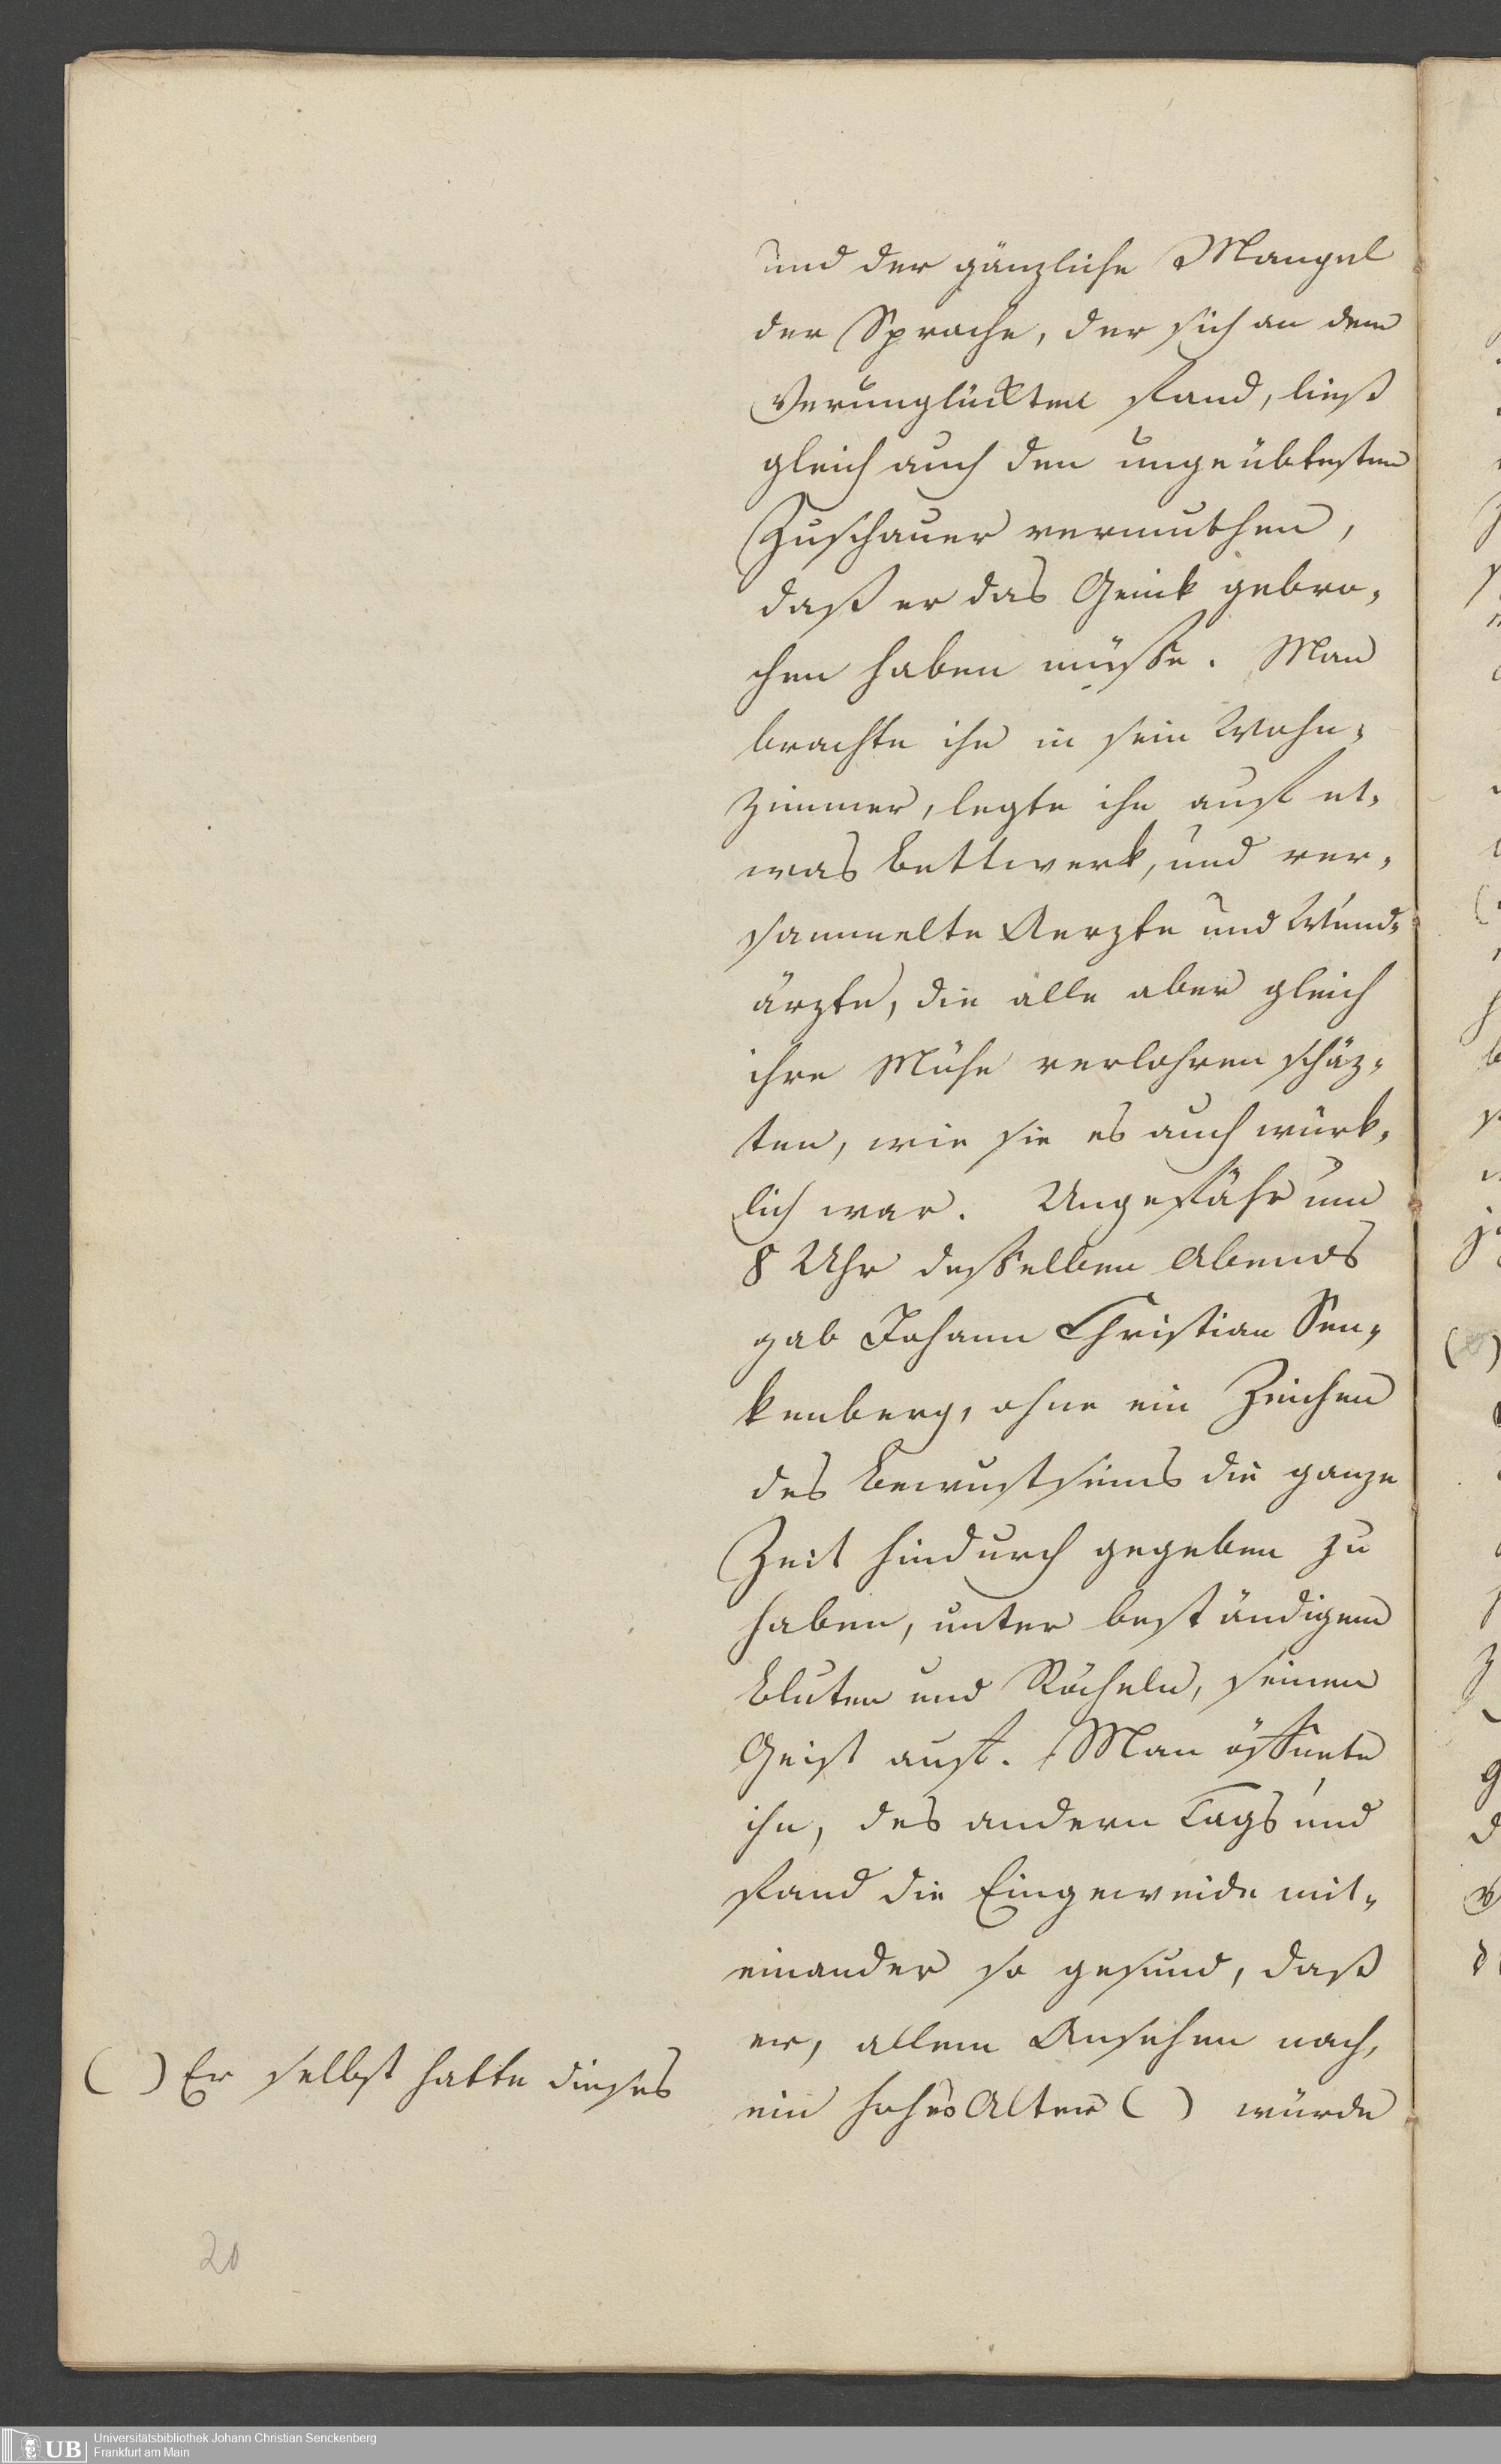 und der gänzliche Mangel
der Sprache, der sich an dem
Verunglückten fand, ließ
gleich auch den ungeübtesten
Zuschauer vermuthen,
daß er das Genick gebro„
chen haben müsse. Man
brachte ihn in sein Wohn„
zimmer, legte ihn auf et„
was Bettwerk, und ver„
sammelte Aerzte und Wund„
ärzte, die alle aber gleich
ihre Mühe verlohren schäz„
ten, wie sie es auch würk„
lich war. Ungefähr um
8 Uhr desselben Abends
gab Johann Christian Sen„
kenberg, ohne ein Zeichen
des Bewustseins die ganze
Zeit hindurch gegeben zu
haben, unter beständigem
Bluten und Röcheln, seinen
Geist auf. Man öffnete
ihn, des andern Tags und
fand die Eingeweide mit„
einander so gesund, daß
er, allem Ansehen nach,
ein hohes Alter ( ) würde
( ) Er selbst hatte dieses
20
UB Universitätsbibliothek Johann Christian Senckenberg
Frankfurt am Main